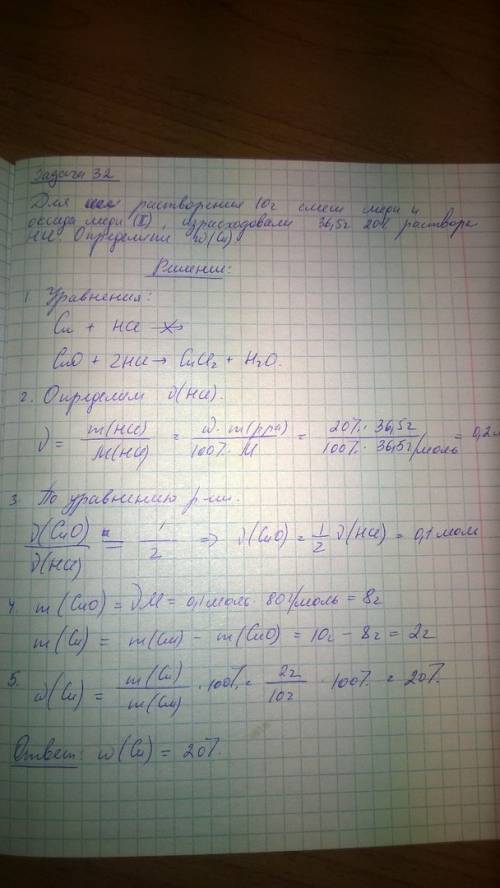 Задача 32
Для растворения 10г смеси меди и
оксида меди (II), израсходовали 36,5г 20% раствора
HCl. Определить ω(Cu)
Решение:
1. Уравнения:
Cu + HCl ↛
CuO + 2HCl → CuCl₂ + H₂O.
2. Определяем ν(HCl).
ν = m(HCl)/M(HCl) = ω · m(рра)/100% · M = 20% · 36,5г/100% · 36,5г/моль = 0,2м
3. По уравнению р-ии.
ν(CuO)/ν(HCl) = 1/2 ⇒ ν(CuO) = 1/2 ν(HCl) = 0,1 моль
4. m(CuO) = νM = 0,1моль · 80г/моль = 8г
m(Cu) = m(см) – m(CuO) = 10г – 8г = 2г
5. ω(Cu) = m(Cu)/m(см) · 100% = 2г/10г · 100% = 20%.
Ответ: ω(Cu) = 20%.